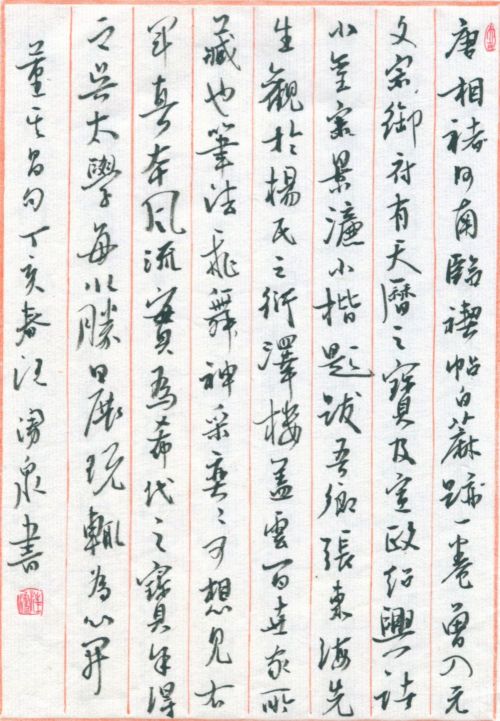 唐相褚河南臨禊帖白麻跡一卷曾入元
文宗御府有天曆之寶及宣政紹興諸
小璽宋景濂小楷題跋吾鄉張東海先
生觀於楊氏之衍澤樓蓋雲間世家所
藏也筆法飛舞神采奕〻可想見右
軍真本風流實為希代之寶余得
之吳太學每以勝日展玩輒為心開
董其昌句丁亥春汪泉書